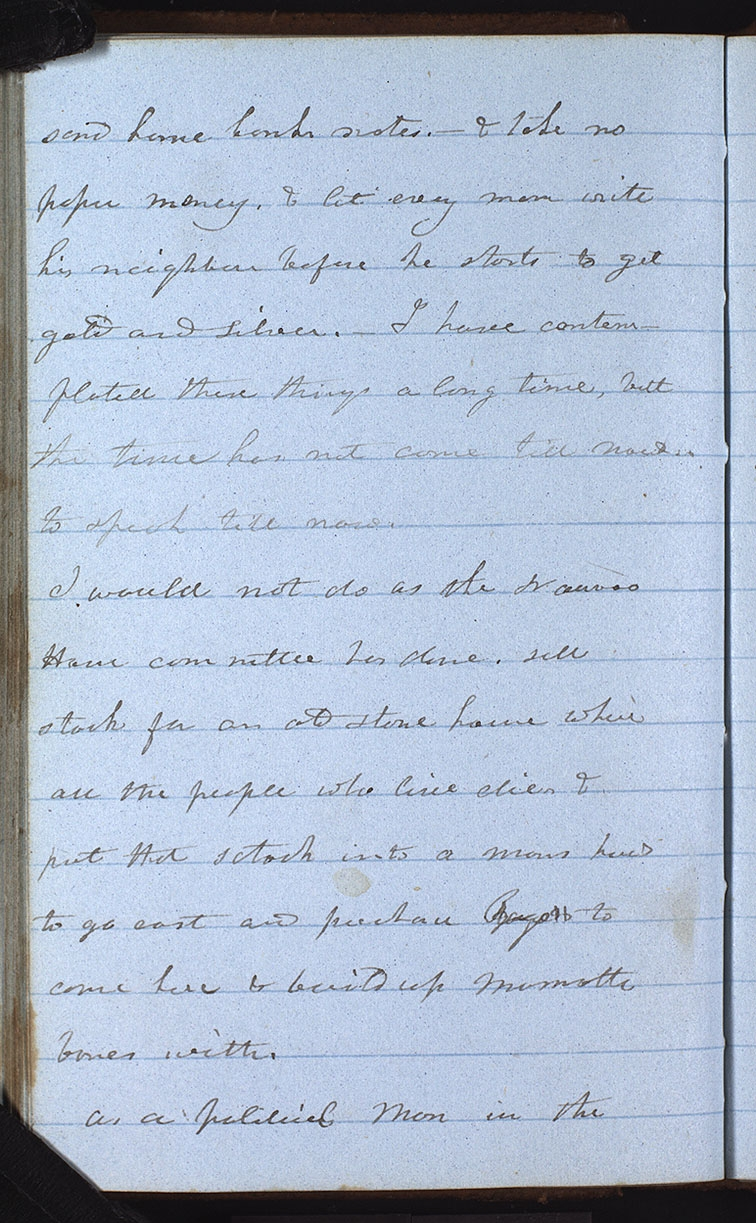 send home bank notes.— & take no
paper money. & let every man write
his neighbour before he starts to get
gold and silver.— I have contem-
plated these things a long time, but
the time has not come till now
to speak till now.
I would not do as the Nauvoo
House committee has done. sell
stock for an old stone house where
all the people who live dies &
put that sctock into a mans hand
to go east and purchase Rags to
come here & build up Mamoth
bones with.
as a political man in the